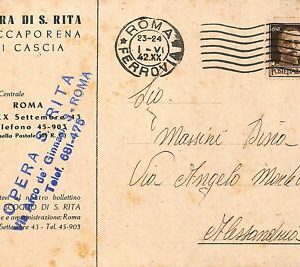 RA DI S. RITA
CCAPORENA
I CASCIA
Centrale
ROMA
XX Settembre 43
Telefono 45-903
OPERA S. RITA
Via Arco de' Ginnasi - ROMA
Telef. 681-476
SCOGLIO DI S. RITA
e amministrazione: Roma
Settembre 43 - Tel. 45-903
ROMA
23-24
1-VI
42.XX
FERROVIA
Massini
Via Angelo
Alessandria